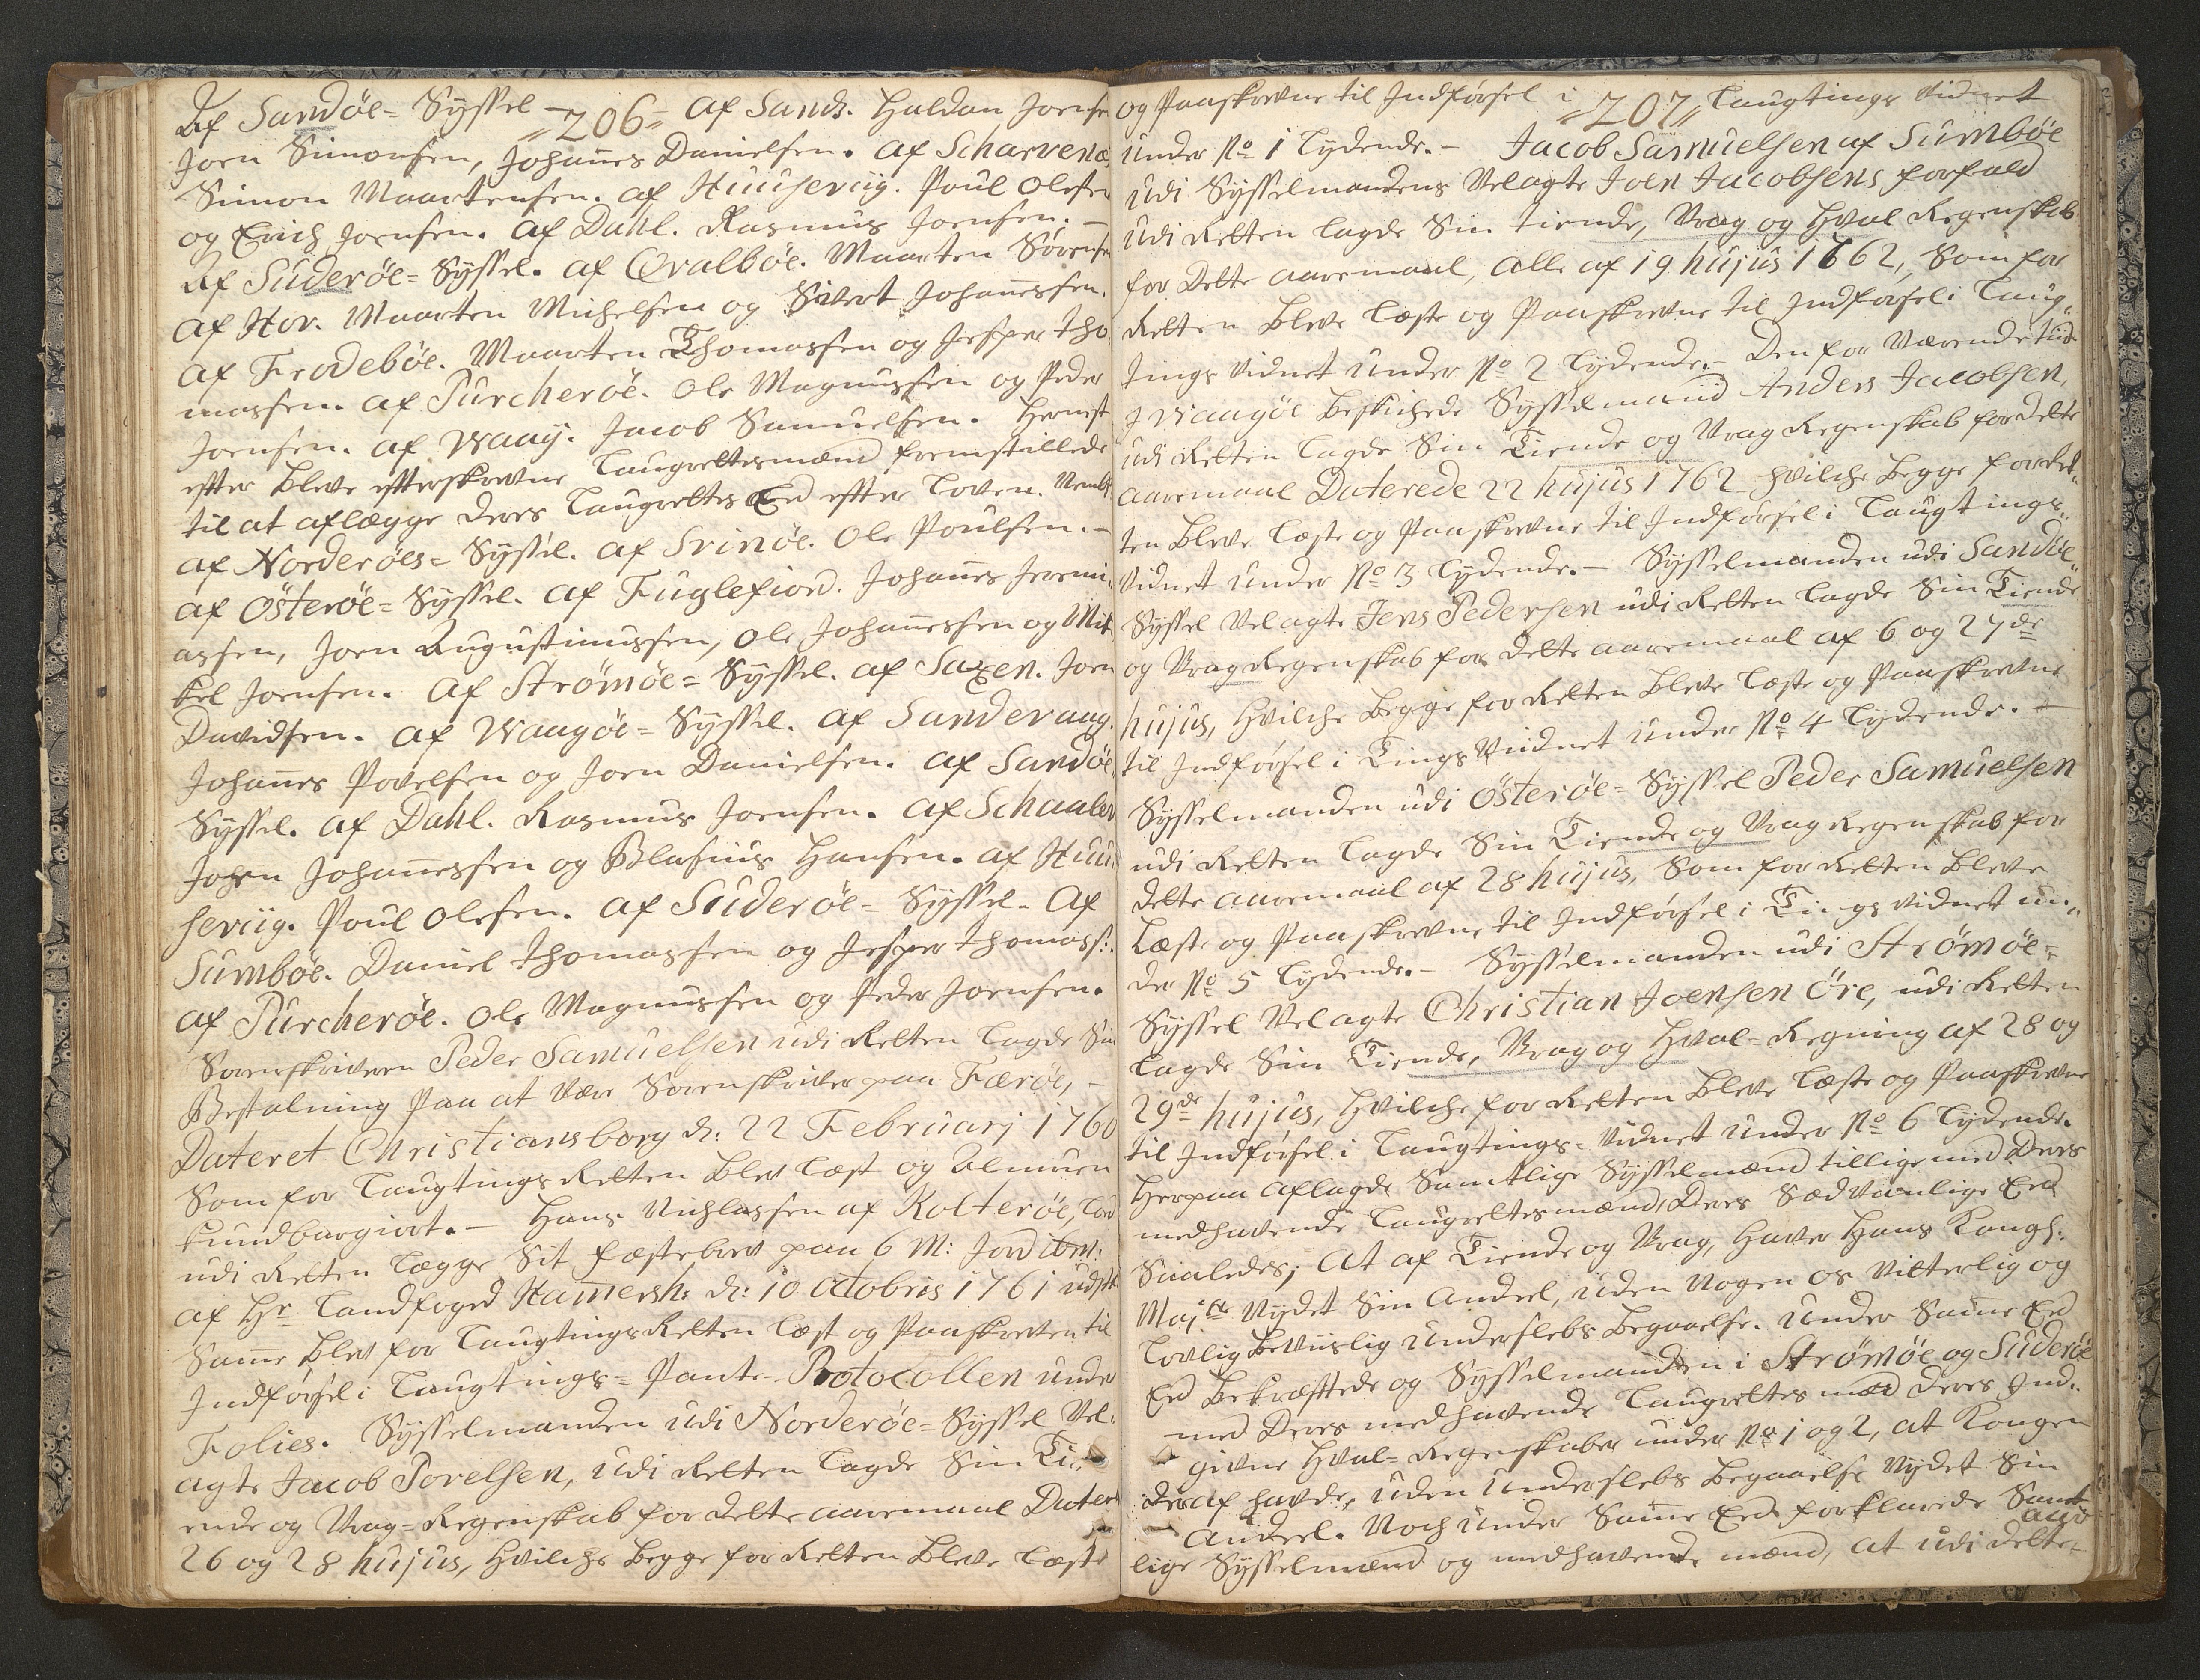 "206"
Af Sandøe=Syssel – af Sand. Haldan Joens
Joen Simonsen, Johanes Danielsen. af Scharvenæs
Simon Maartensen. af Huuseviig. Poul Olesen
og Erich Joensen. af Dahl. Rasmus Joensen. –
Af Süderøe=Syssel. af Qvalbøe. Maarten Sörens
af Hov. Maarten Michelsen og Sivert Johanessen.
af Frodebøe. Maarten Thomassen og Jesper Tho
massen. af Pürcherøe. Ole Magnussen og Peder
Joensen. af Waaij. Jacob Samuelsen. Hernest
efter bleve efterskrevne Laugrettesmænd fremstillede
til at aflægge deres Laugrettes Eed efter Loven. Nembl.
af Norderøes=Syssel. af Svinøe. Ole Poulsen. –
af Österøe=Syssel. af Fuglefiord. Johanes Jeremi
assen, Joen Augustinussen, Ole Johanessen og Mi
kel Joensen. Af Strömøe=Syssel. af Saxen. Joen
Davidsen. af Waagøe=Syssel. af Sandevaag.
Johanes Povelsen og Joen Danielsen. af Sandøe
Syssel. af Dahl. Rasmus Joensen. af Schaalev
Johen Johanessen og Blasius Hansen. af Huu
seviig. Poul Olesen. af Süderøe=Syssel – Af
Sumbøe. Daniel Thomassen og Jesper Thomass:
af Pürcherøe. Ole Magnussen og Peder Joensen.
Sorenskriveren Peder Samüelsen udi Retten lagde Sin
Bestalning paa at være Sorenskriver paa Færøe, –
Dateret Christiansborg d: 22 Februarj 1760
Som for Laugtings Retten blev læst og Almuen
kundbargiort. – Hans Nichlassen af Kolterøe, lod
udi Retten lægge Sit fæstebrev paa 6 M: Jord ibm:
af Hr Landfoged Hamersh: d: 10 Octobris 1761 udstæ
Same blev for Laugtings Retten læst og Paaskreven til
Indførsel i Laugtings=Pante-Protocollen under
Folies. Sysselmanden udi Norderøe=Syssel Vel
agte Jacob Povelsen, udi Retten lagde Sin Ti
ende og Vrag=Regenskab for dette aaremaal Dater
26 og 28 hujus, hvilche begge for Retten bleve læste
"207"
og Paaskrevne til Indførsel i Laugtings Vidnet
under No 1 Lydende. – Jacob Samüelsen af Sümbøe
udi Sysselmandens Velagte Joen Jacobsens forfald
udi Retten lagde Sin tiende, Vrag og Hval Regenskab
for dette aaremaal, alle af 19 hüjüs 1762, Som for
Retten bleve læste og Paaskrevne til Indførsel i Laug
tings Vidnet under No 2 Lydende. – Den for Værende tiid
i Waagöe beskichede Sysselmand Anders Jacobsen,
udi Retten lagde Sin Tiende og Vrag Regenskab for dette
aaremaal Daterede 22 hüjüs 1762 hvilche begge for Ret
ten bleve læste og Paaskrevne til Indførsel i Laugtings
Vidnet under No 3 Lydende. – Sysselmanden udi Sandöe
Syssel Velagte Jens Pedersen udi Retten lagde Sin Tiende
og Vrag Regenskab for dette aaremaal af 6 og 27de
hujus, hvilche begge for Retten bleve læste og Paaskrevne
til Indførsel i Tings Vidnet under No 4 Lydende. –
Sysselmanden udi Österøe=Syssel Peder Samüelsen
udi Retten lagde Sin Tiende og Vrag Regenskab for
dette aaremaal af 28 hujus, Som for Retten bleve
læste og Paaskrevne til Indførsel i Tings vidnet un
der No 5 Lydende. – Sysselmanden udi Strömøe=
Syssel Velagte Christian Joensen Öre, udi Retten
lagde Sin Tiende, Vrag og Hval=Regning af 28 og
29de hüjüs, hvilche for Retten bleve læste og Paaskrevne
til Indførsel i Laugtings=Vidnet under No 6 Lydende.
Herpaa aflagde Samtlige Sysselmænd tilligemed deres
medhavende Laugrettesmænd, deres Sædvanlige Eed
Saaledes; At af Tiende og Vrag, haver Hans Kongl:
Majts Nydet Sin Andeel, uden Nogen os Vitterlig og
Lovlig beviislig Underslebs begaaelse. Under Same Eed
Eed bekræftede og Sysselmanden i Strömöe og Süderöe
med deres medhavende Laugrettes mæd deres Ind
givne Hval=Regenskaber under No 1 og 2, at Kongen
deraf havde, uden Underslebs begaaelse Nydet Sin
Andeel. Noch under Same Eed forklarede Samt
lige Sysselmænd og medhavende mænd, at udi dette
aar